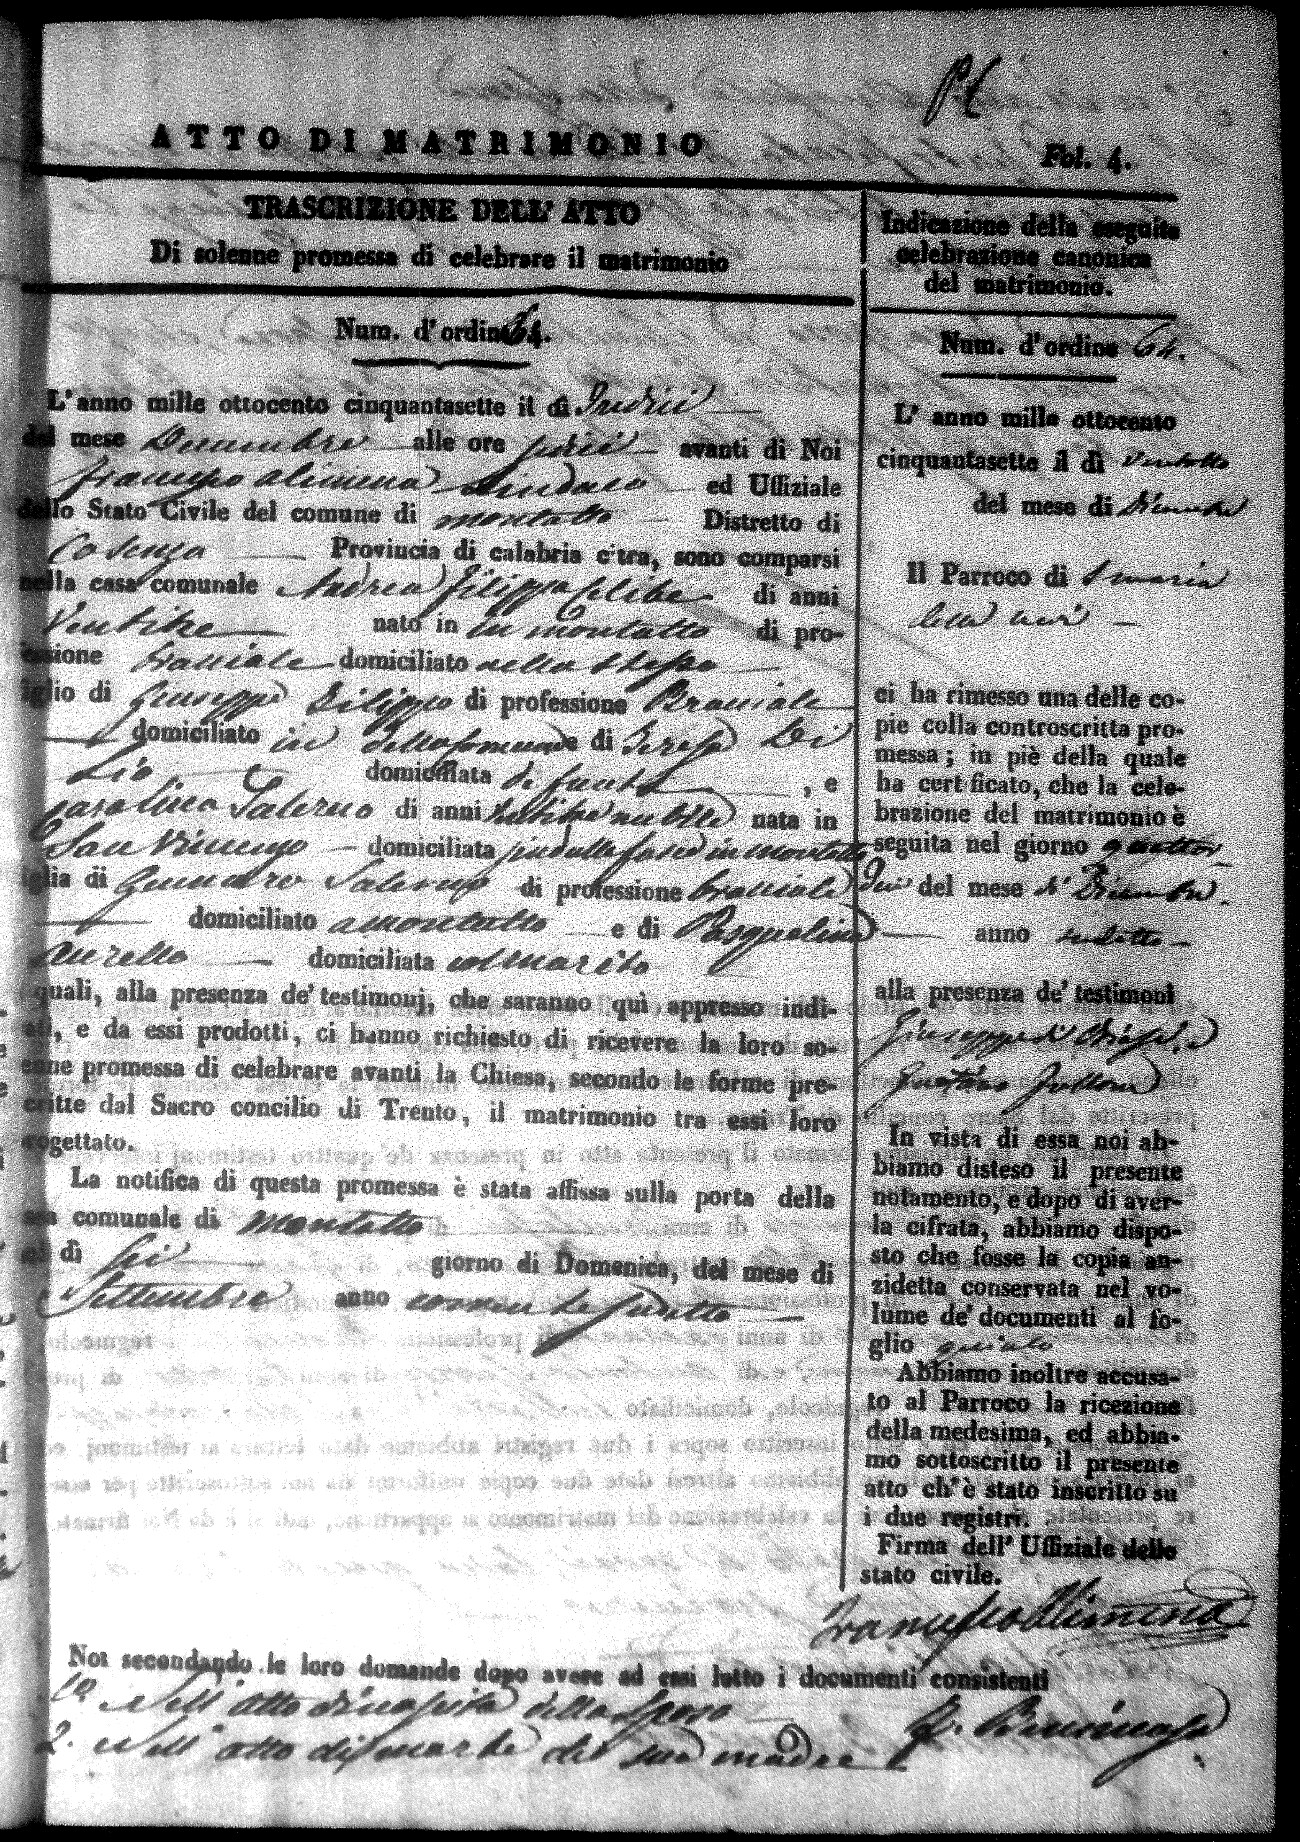 ATTO DI MATRIMONIO
Fol. 4.
TRASCRIZIONE DELL' ATTO
Di solenne promessa di celebrare il matrimonio
Num. d'ordine 64.
L'anno mille ottocento cinquantasette il dì Tredici
del mese Decembre alle ore avanti di Noi
Francesco Alimena Sindaco ed Uffiziale
dello Stato Civile del comune di Montalto Distretto di
Cosenza Provincia di calabria citra, sono comparsi
nella casa comunale Andrea Filippo celibe di anni
Ventitre nato in in Montalto di pro-
fessione bracciale domiciliato nella stessa
figlio di Giuseppe Filippo di professione Bracciale
domiciliato in detto Comune e di Teresa Di
Lio domiciliata defunta , e
Carolina Salerno di anni ventitre nubile nata in
San Vincenzo domiciliata in Montalto
figlia di Gennaro Salerno di professione bracciale
domiciliato a Montalto e di Pasqualina
Aurello domiciliata col marito
quali, alla presenza de' testimonj, che saranno quì appresso indi-
cati, e da essi prodotti, ci hanno richiesto di ricevere la loro so-
lenne promessa di celebrare avanti la Chiesa, secondo le forme pre-
scritte dal Sacro concilio di Trento, il matrimonio tra essi loro
progettato.
La notifica di questa promessa è stata affissa sulla porta della
casa comunale di Montalto
dì Sei giorno di Domenica, del mese di
Settembre anno
Noi secondando le loro domande dopo avere ad essi letto i documenti consistenti
1o Nell'atto di nascita dello Sposo
2. Nell'atto di morte di sua madre
Indicazione della eseguita
celebrazione canonica
del matrimonio.
Num. d'ordine 64.
L' anno mille ottocento
cinquantasette il dì ventotto
del mese di Dicembre
Il Parroco di S Maria
della
ci ha rimesso una delle co-
pie colla controscritta pro-
messa; in piè della quale
ha certificato, che la cele-
brazione del matrimonio è
seguita nel giorno quattor
dici del mese di Dicembre.
anno sudetto
alla presenza de' testimoni
Giuseppe
In vista di essa noi ab-
biamo disteso il presente
notamento, e dopo di aver-
la cifrata, abbiamo dispo-
sto che fosse la copia an-
zidetta conservata nel vo-
lume de' documenti al fo-
glio quinto
Abbiamo inoltre accusa-
to al Parroco la ricezione
della medesima, ed abbia-
mo sottoscritto il presente
atto ch' è stato inscritto su
i due registri.
Firma dell' Uffiziale dello
stato civile.
Francesco Alimena